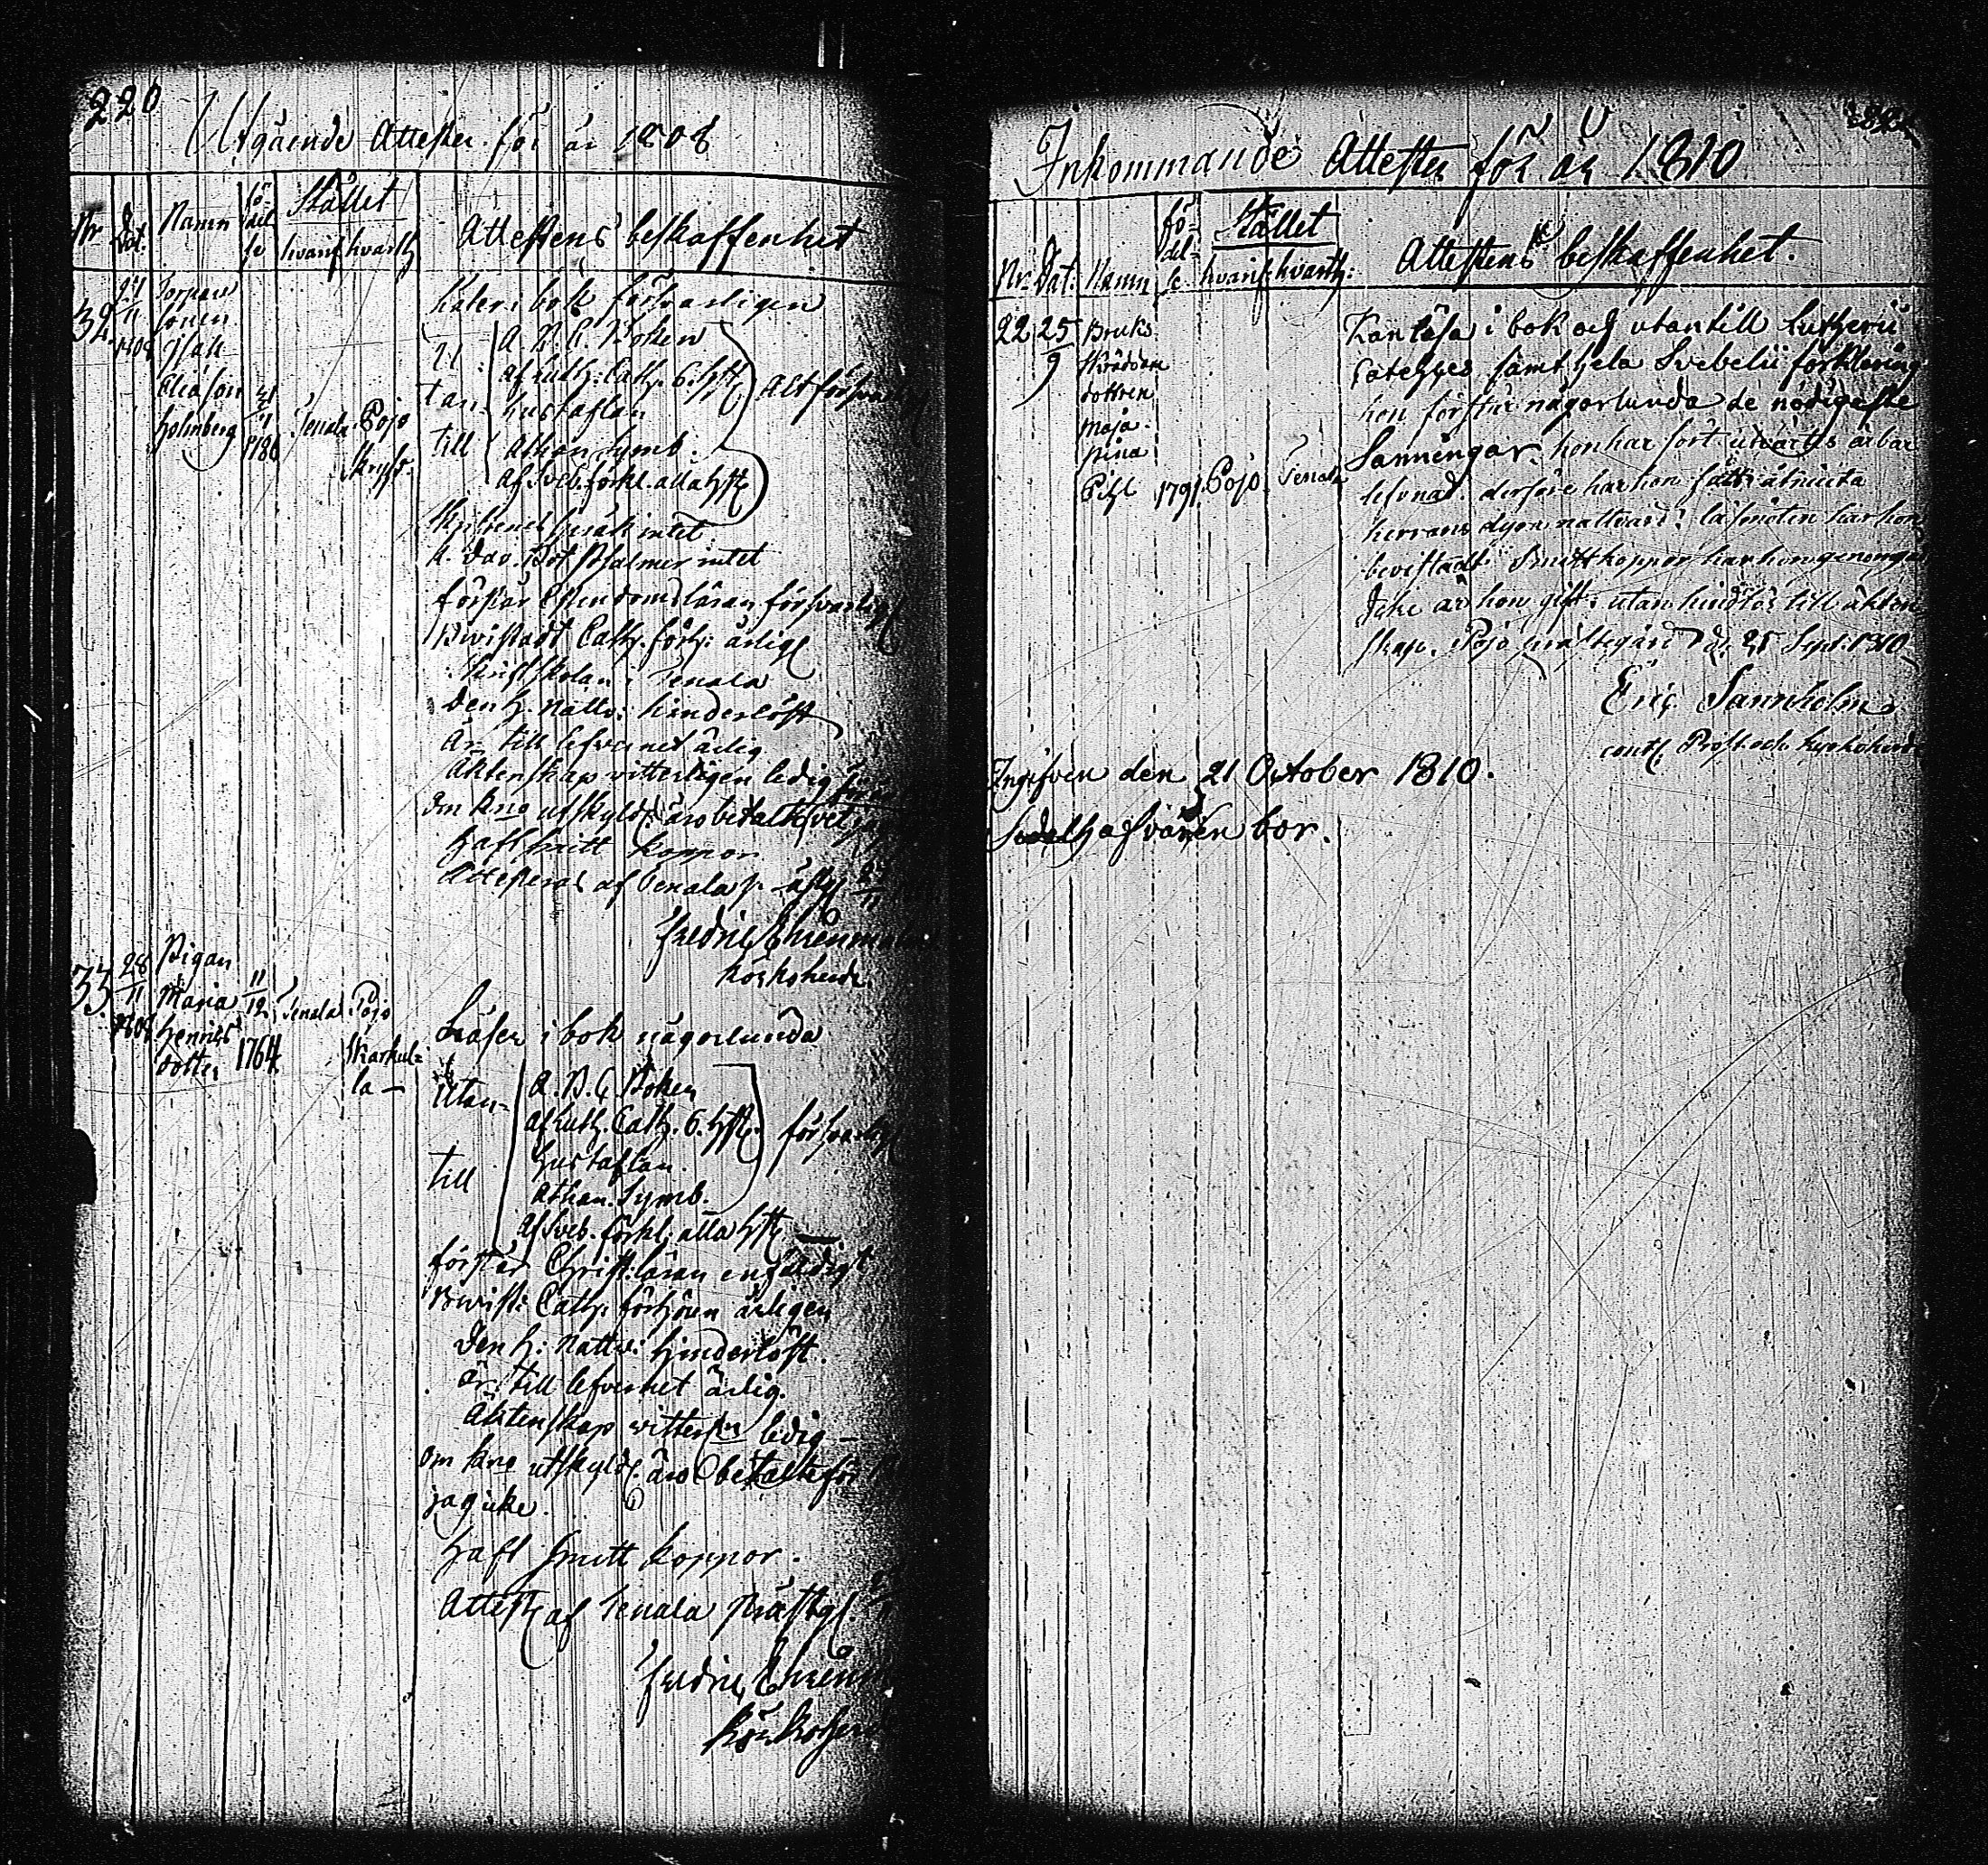 220
Utgående Attester för år 1808
Nr Dat. Namn fö-del-se Stället hvarifr hvarth Attestens beskaffenhet
32 27/11 1808 Torpare
sonen
Isak
Eliason
Holmberg 1786 Tenala Pojo
i bok försvarligen
Utan till A. B. C. Boken
af Luth. Cath. 6. hft
hustaflan
Athan. Symb.
af Sveb. förkl. alla hft
intet
K. Dav. Bot Psalmer intet
förstår Christendomsläran försvarligt
Biwistadt Cath. förh: årlig
i Tenala
den H. Nattv: hinderlöst
Är till lefvernet ärlig
Äktenskap vitterligen ledig
Om kno utskyld: äro betalte vet
haft smitt koppor
Attesteras af Tenala p.
Fredric Ehren
Körkoherde
33 28/11 1808 Pigan
Maria
Henrics
dotter 11/12 1764 Tenala Pojo
Skarkul-
la –
Läser i bok någorlunda
Utan-
till A. B. C Boken
af Luth. Cath. 6. hft.
hustaflan.
Athan. Symb.
af Sveb. förkl. alla hft
förstår Christ: läran enfaldigt
Biwist: Cath: förhören årligen
Den H: Nattv: hinderlöst.
är till lefvernet ärlig.
Äktenskap ledig –
Om kno utskyld. äro betalte för
jag icke.
haft smitt koppor.
Attest af Tenala Prästg
Fredric Ehren
Körkoher
Inkommande Attester för år 1810
Nr. Dat. Namn fö-del-se Stället hvarifr: hvarth: Attestens beskaffenhet.
22 25/9 Bruks
skräddare
dottren
Maja
Stina
Pihl 1791. Pojo. Tenala
Kan läsa i bok och utantill Lutheri
Cateches samt hela Svebelii förklaring
hon förstår någorlunda de nödigaste
Sanningar. hon har fört utvärtes ärbar
lefvnad. derföre har hon fått åtniuta
herrans dyra nattvard: läsmöten har hon
bevistadt. Smittkoppor har hon genomgå
Icke är hon gift: utan hindlös till äkten
skap. Pojo prästegård d. 25 Sept. 1810
Eric Sannholm
contr. Prost och kyrkoherde
Ingifven den 21 October 1810.
bor.